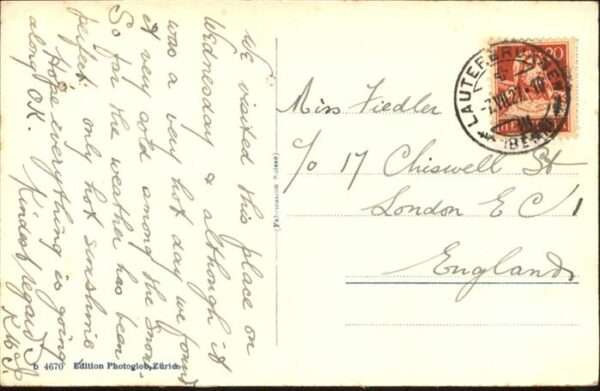 We visited this place on
Wednesday & although it
was a very hot day we found
it very cold among the snow.
So far the weather has been
perfect only hot sunshine
Hope everything is going
along O.K. Kindest regards
Miss Fiedler
c/o 17 Chiswell St
London E C 1
England
20
LAUTERBRUNNEN
(BERN)
HELVETIA
4670 Edition Photoglob, Zürich